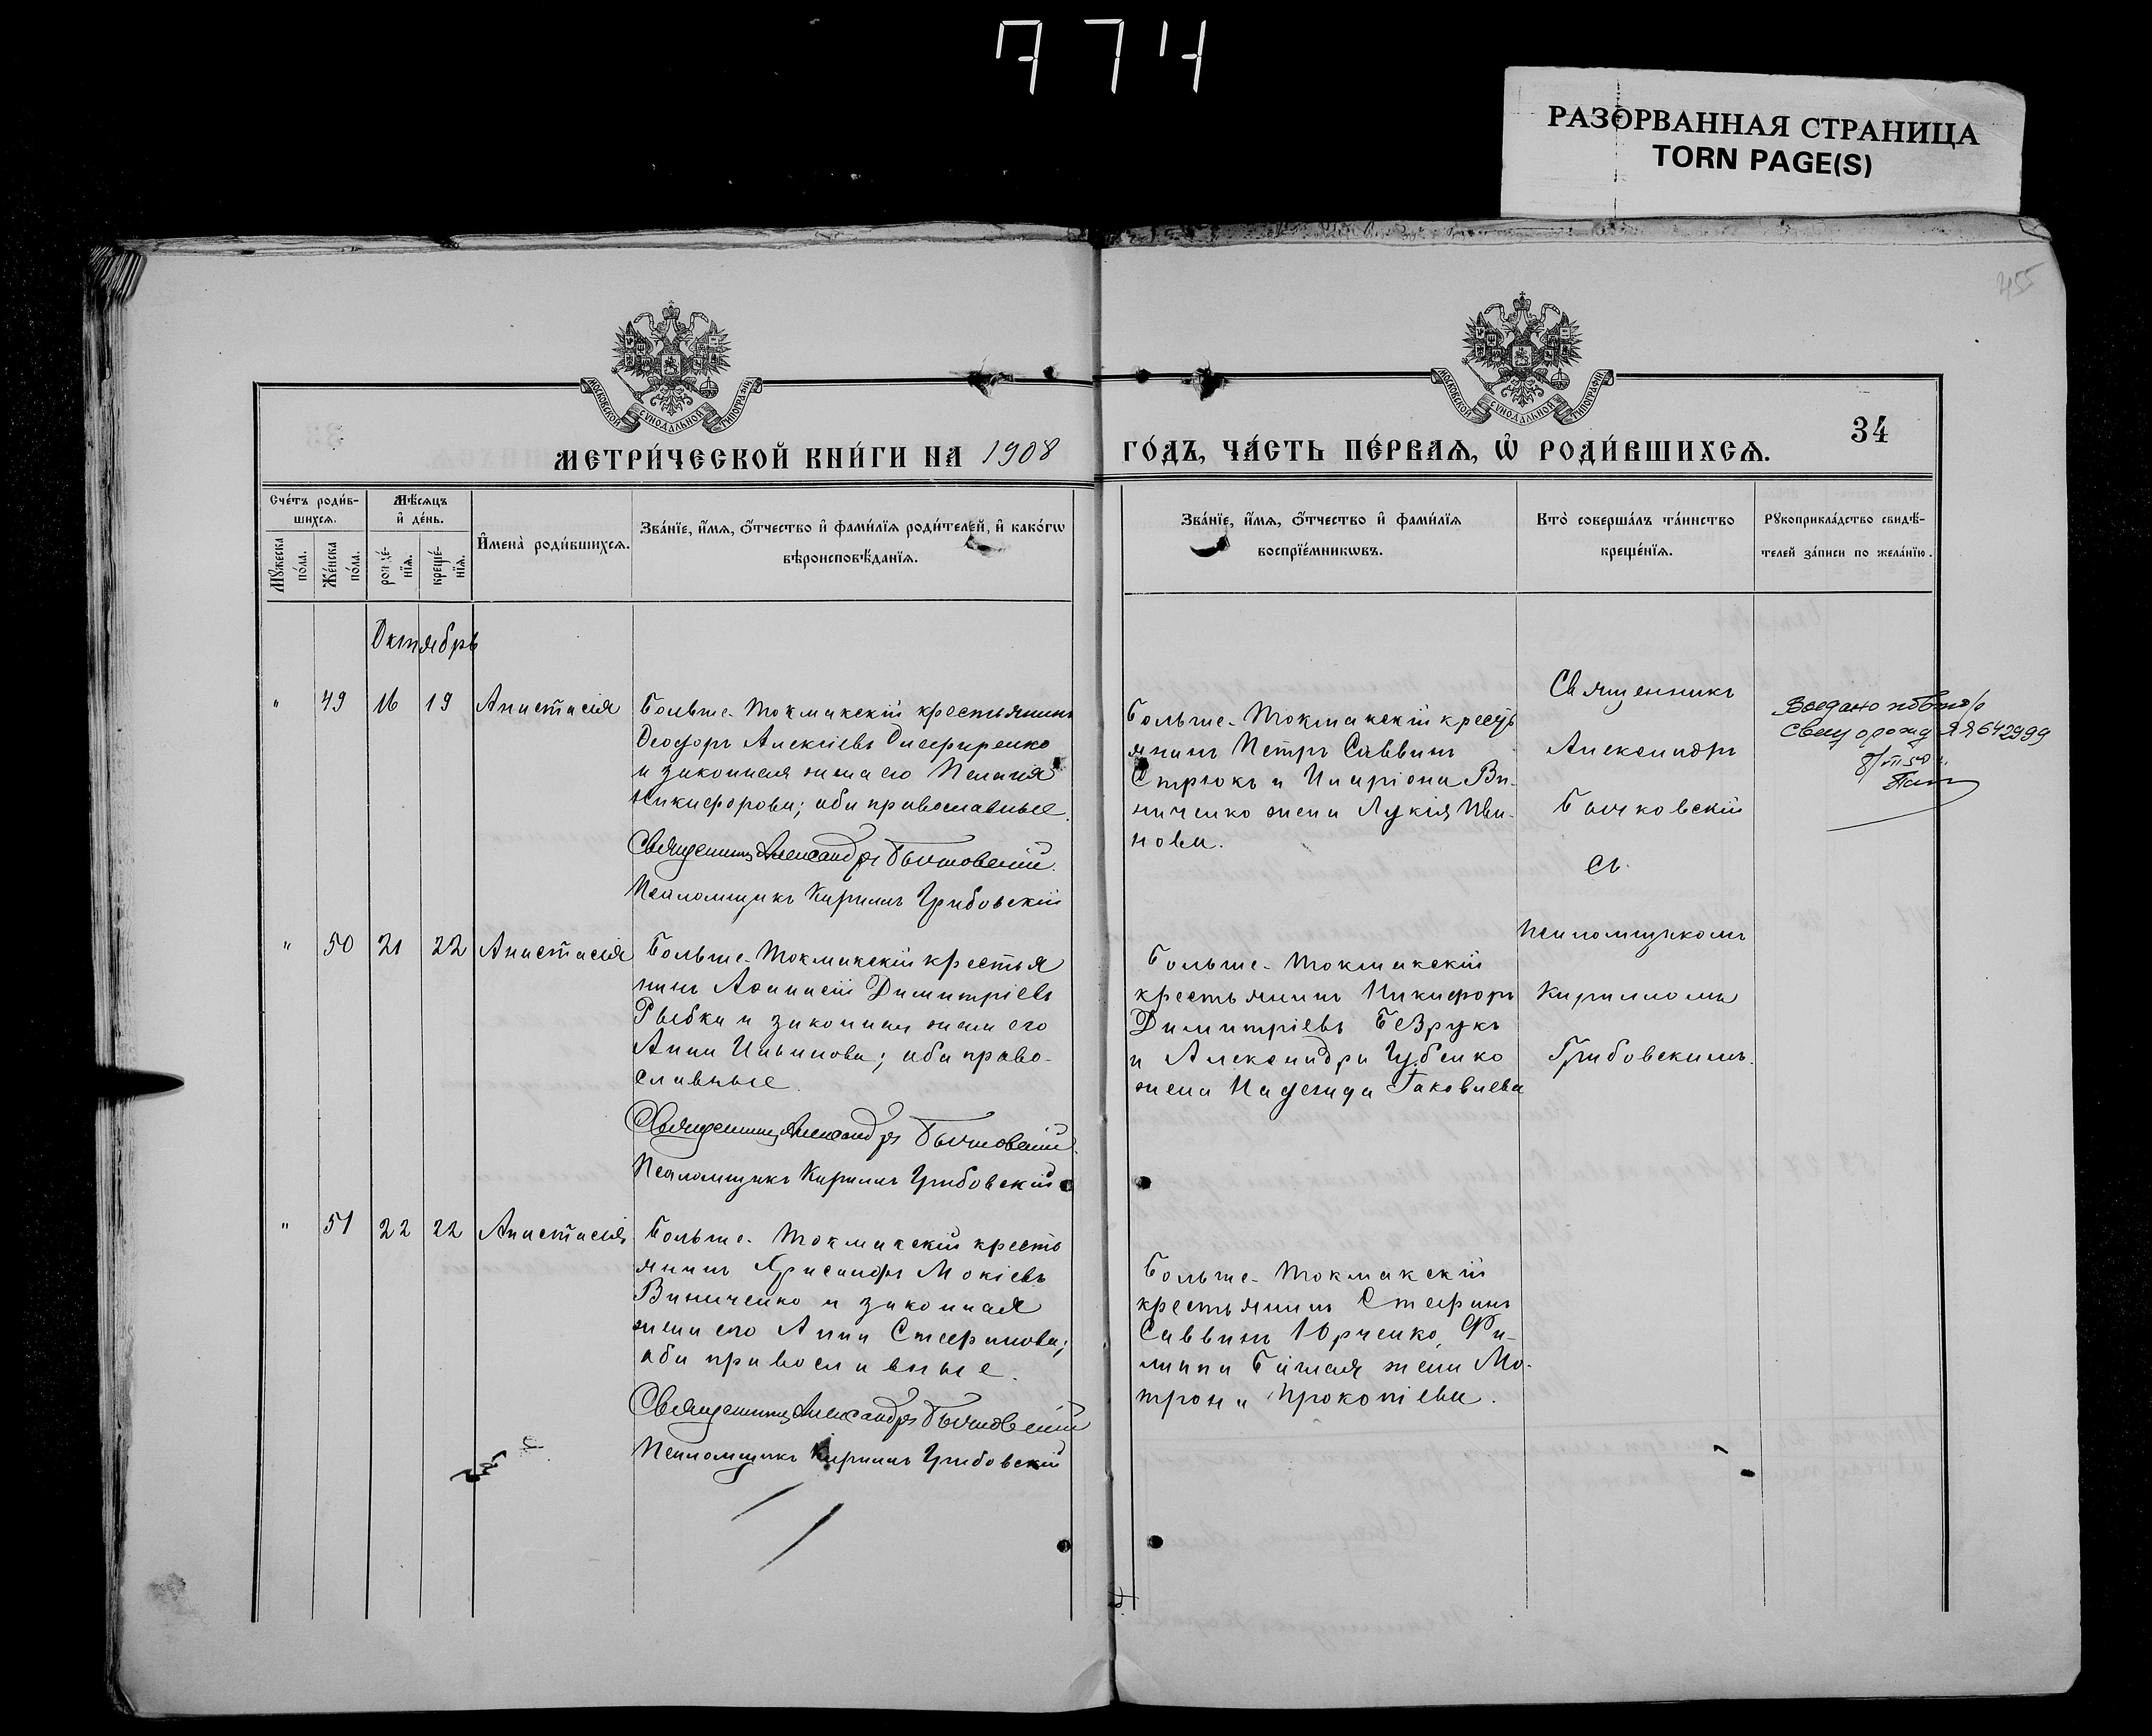 774
РАЗОРВАННАЯ СТРАНИЦА
TORN PAGE(S)
455
МОСКОВСКОЙ СѴНОДАЛЬНОЙ ТИПОГРАФІИ
МОСКОВСКОЙ СѴНОДАЛЬНОЙ ТИПОГРАФІИ
34
МЕТРИ́ЧЕСКОЙ КНИ́ГИ НА 1908
ГО́ДЪ, ЧА́СТЬ ПЕ́РВАѦ, Ѡ҆ РОДИ́ВШИХСѦ.
Сче́тъ роди́в-
шихсѧ.
Мꙋ́жеска по́ла.
Же́нска по́ла.
Мѣ́сѧцъ
и҆ де́нь.
рожде́-
нїѧ.
креще́-
нїѧ.
И҆мена̀ роди́вшихсѧ.
Зва́нїе, и҆́мѧ, ѻ҆́тчество и҆ фами́лїѧ роди́телей, и҆ како́гѡ
вѣроисповѣ́данїѧ.
Зва́нїе, и҆́мѧ, ѻ҆́тчество и҆ фами́лїѧ
воспрїе́мникѡвъ.
Кто̀ соверша́лъ та́инство
креще́нїѧ.
Рꙋкоприкла́дство свидѣ́-
телей за́писи по жела́нїю.
Октябрь
" 49 16 19 Анастасія
Больше-Токмакскій крестьянинъ
Ѳеодоръ Алексіевъ
и законная жена его Пелагія
Никифорова; оба православные.
Священникъ Александръ Бычковскій.
Псаломщикъ Кириллъ Грибовскій
Больше-Токмакскій кресть
янинъ Петръ Саввинъ
Стрюкъ и Иларіона Ви-
ниченко жена Лукія Ива-
нова.
Священникъ
Александръ
Бычковскій
съ
Псаломщикомъ
Кирилломъ
Грибовскимъ.
повтор
свид о рожд ЯЯ 642999
" 50 21 22 Анастасія
Больше-Токмакскій крестья
нинъ Аѳанасій Димитріевъ
Рыбка и законная жена его
Анна Иванова; оба право-
славные.
Священникъ Александръ Бычковскій.
Псаломщикъ Кириллъ Грибовскій
Больше-Токмакскій
крестьянинъ Никифоръ
Димитріевъ Безрукъ
и Александра Губенко
жена Надежда Іаковлева
" 51 22 22 Анастасія
Больше-Токмакскій кресть
янинъ Хрисанфъ Мокіевъ
Виниченко и законная
жена его Анна Стефанова;
оба православные.
Священникъ Александръ Бычковскій
Псаломщикъ Кириллъ Грибовскій
Больше-Токмакскій
крестьянинъ Стефанъ
Саввинъ Юрченко, Фи-
липпа жена Ма-
трона Прокопіева.